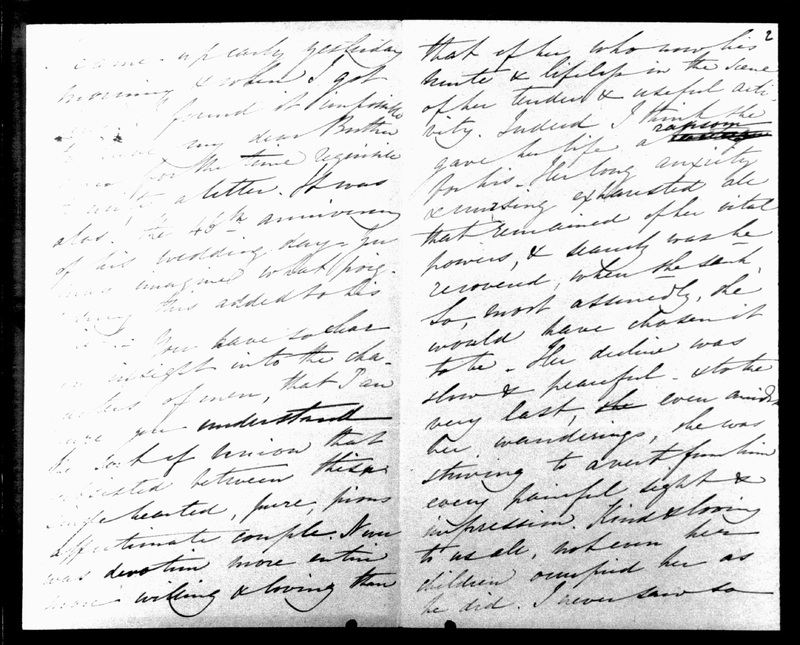 came up early yesterday
morning & when I got
found it impossible
my dear Brother
for the time
a letter. It was
alas! the 46th anniversary
of his wedding day - you
may imagine what poig-
nancy this added to his
You have so clear
an insight into the cha-
racters of men, that I am
sure you understand
the sort of union that
existed between this
single hearted, pure, pious
affectionate couple. Never
was devotion more entire
more willing & loving than
2
that of her, who now lies
mute & lifeless in the scene
of her tender & useful acti-
vity. Indeed I think she
gave her life a ransom
for his. Her long anxiety
& nursing exhausted all
that remained of her vital
powers, & scarcely was he
recovered, when she sank.
So, most assuredly, she
would have chosen it
to be. Her decline was
slow & peaceful - & to the
very last, she even amidst
her wanderings, she was
striving to avert from him
every painful sight &
impression. Kind & loving
to us all, not even her
children occupied her as
he did. I never saw so